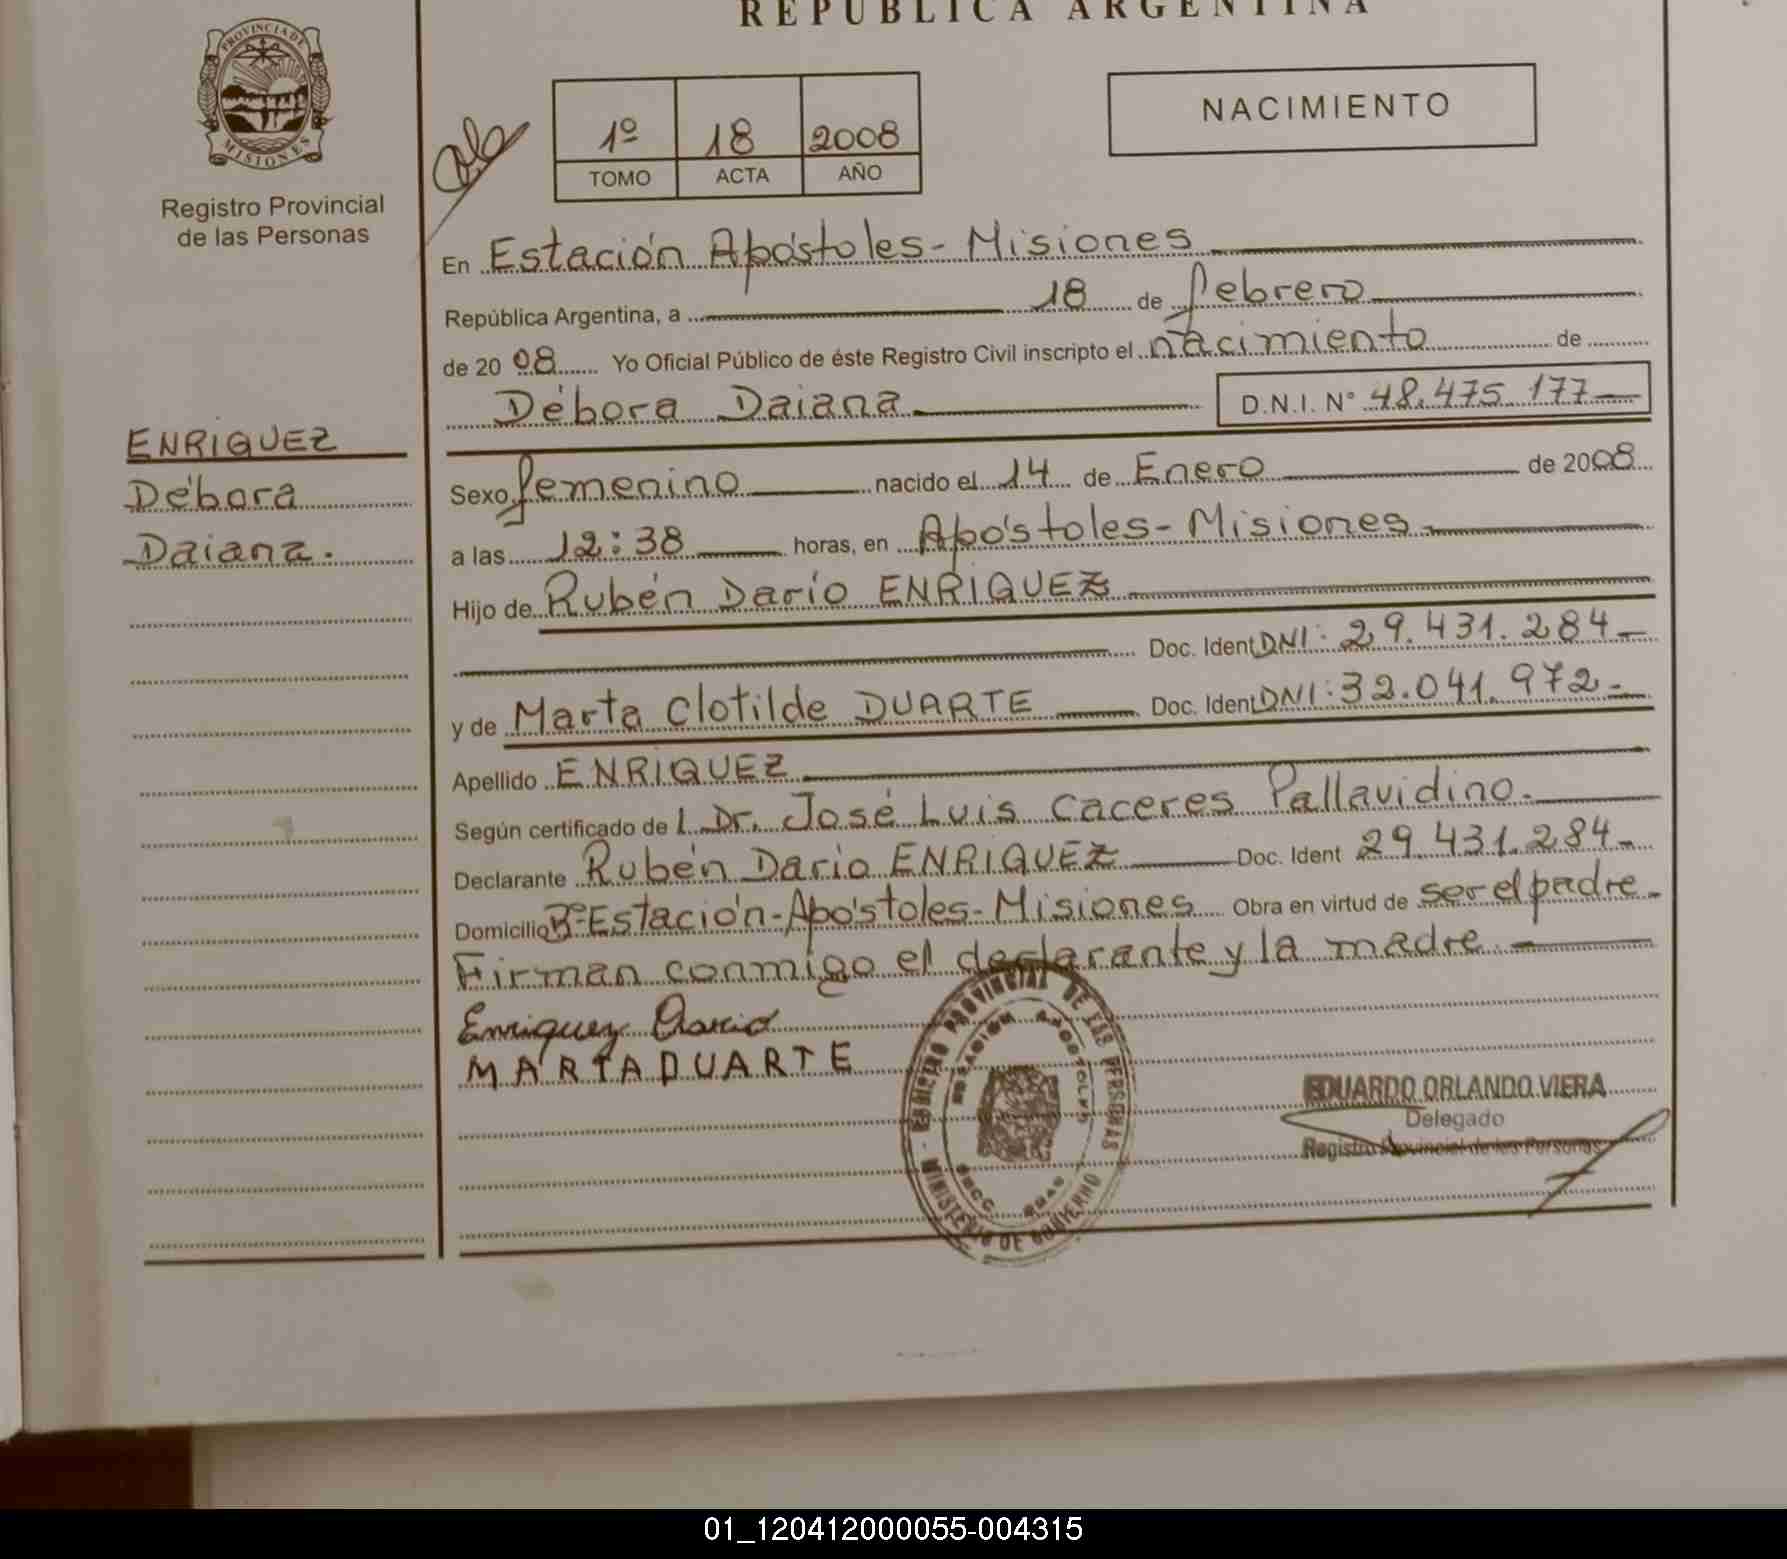 REPUBLICA ARGENTINA
PROVINCIA DE
MISIONES
Registro Provincial
de las Personas
1º 18 2008
TOMO ACTA AÑO
NACIMIENTO
En Estación Apóstoles - Misiones
República Argentina, a 18 de febrero
de 2008 Yo Oficial Público de éste Registro Civil inscripto el nacimiento de
Débora Daiana D.N.I. N° 48.475.177
ENRIQUEZ
Débora
Daiana.
Sexo femenino nacido el 14 de Enero de 2008
a las 12:38 horas, en Apóstoles - Misiones
Hijo de Rubén Darío ENRIQUEZ
Doc. Ident DNI: 29.431.284
y de Marta Clotilde DUARTE Doc. Ident DNI: 32.041.972
Apellido ENRIQUEZ
Según certificado de l Dr. José Luis Caceres Pallavidino.
Declarante Rubén Dario ENRIQUEZ Doc. Ident 29.431.284
Domicilio Bº Estación - Apóstoles - Misiones Obra en virtud de ser el padre
Firman conmigo el declarante y la madre
Enriquez Dario
MARTA DUARTE
REGISTRO PROVINCIAL DE LAS PERSONAS
MINISTERIO DE GOBIERNO
ESTACION APOSTOLES
EDUARDO ORLANDO VIERA
Delegado
Registro Provincial de las Personas
01_120412000055-004315